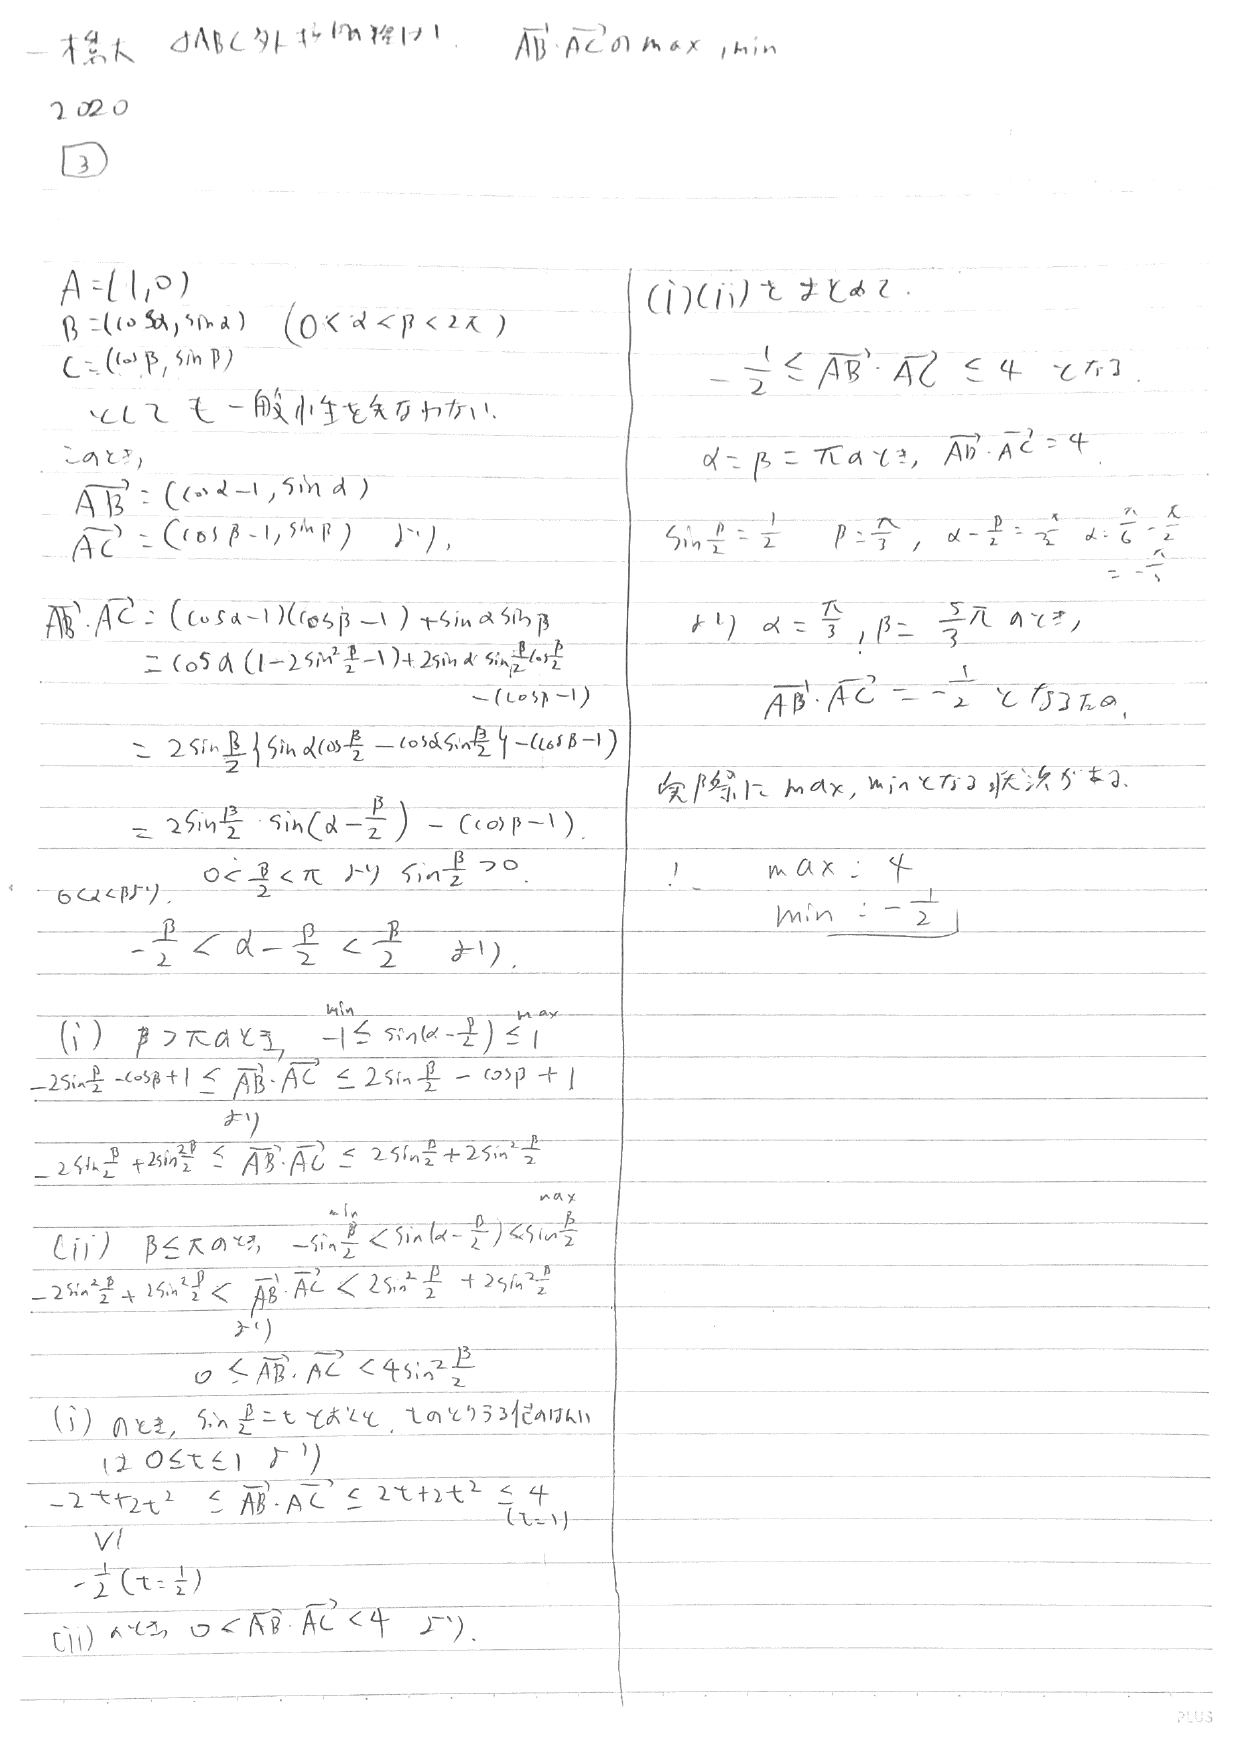 一橋大 △ABC 外接円の半径は1. AB→・AC→のmax,min
2020
3
A=(1,0)
B=(cosα,sinα) (0<α<β<2π)
C=(cosβ,sinβ)
としても一般性を失なわない.
このとき,
AB→=(cosα-1,sinα)
AC→=(cosβ-1,sinβ) より,
AB→・AC→=(cosα-1)(cosβ-1)+sinαsinβ
=cosα(1-2sin²β/2-1)+2sinα sinβ/2cosβ/2
-(cosβ-1)
=2sinβ/2{sinαcosβ/2-cosαsinβ/2}-(cosβ-1)
=2sinβ/2・sin(α-β/2)-(cosβ-1).
0<β/2<π より sinβ/2>0.
0<α<βより.
-β/2<α-β/2<β/2 より.
min max
(i) β>πのとき, -1≤sin(α-β/2)≤1
-2sinβ/2-cosβ+1≤AB→・AC→≤2sinβ/2-cosβ+1
より
-2sinβ/2+2sin²β/2≤AB→・AC→≤2sinβ/2+2sin²β/2
min max
(ii) β≤πのとき, -sinβ/2<sin(α-β/2)<sinβ/2
-2sin²β/2+2sin²β/2<AB→・AC→<2sin²β/2+2sin²β/2
より
0≤AB→・AC→<4sin²β/2
(i)のとき, sinβ/2=tとおくと, tのとりうる値のはんい
は0≤t≤1より
-2t+2t²≤AB→・AC→≤2t+2t²≤4
(t=1)
VI
-1/2(t=1/2)
(ii)のとき, 0<AB→・AC→<4 より.
(i)(ii)をまとめて.
-1/2≤AB→・AC→≤4 となる.
α=β=πのとき, AB→・AC→=4.
sinβ/2=1/2 β=π/3, α-β/2=π/2 α=π/6-π/2
=-π/3
より α=π/3, β=5/3πのとき,
AB→・AC→=-1/2となるため,
実際にmax, minとなる状況がある.
max: 4
min: -1/2
PLUS